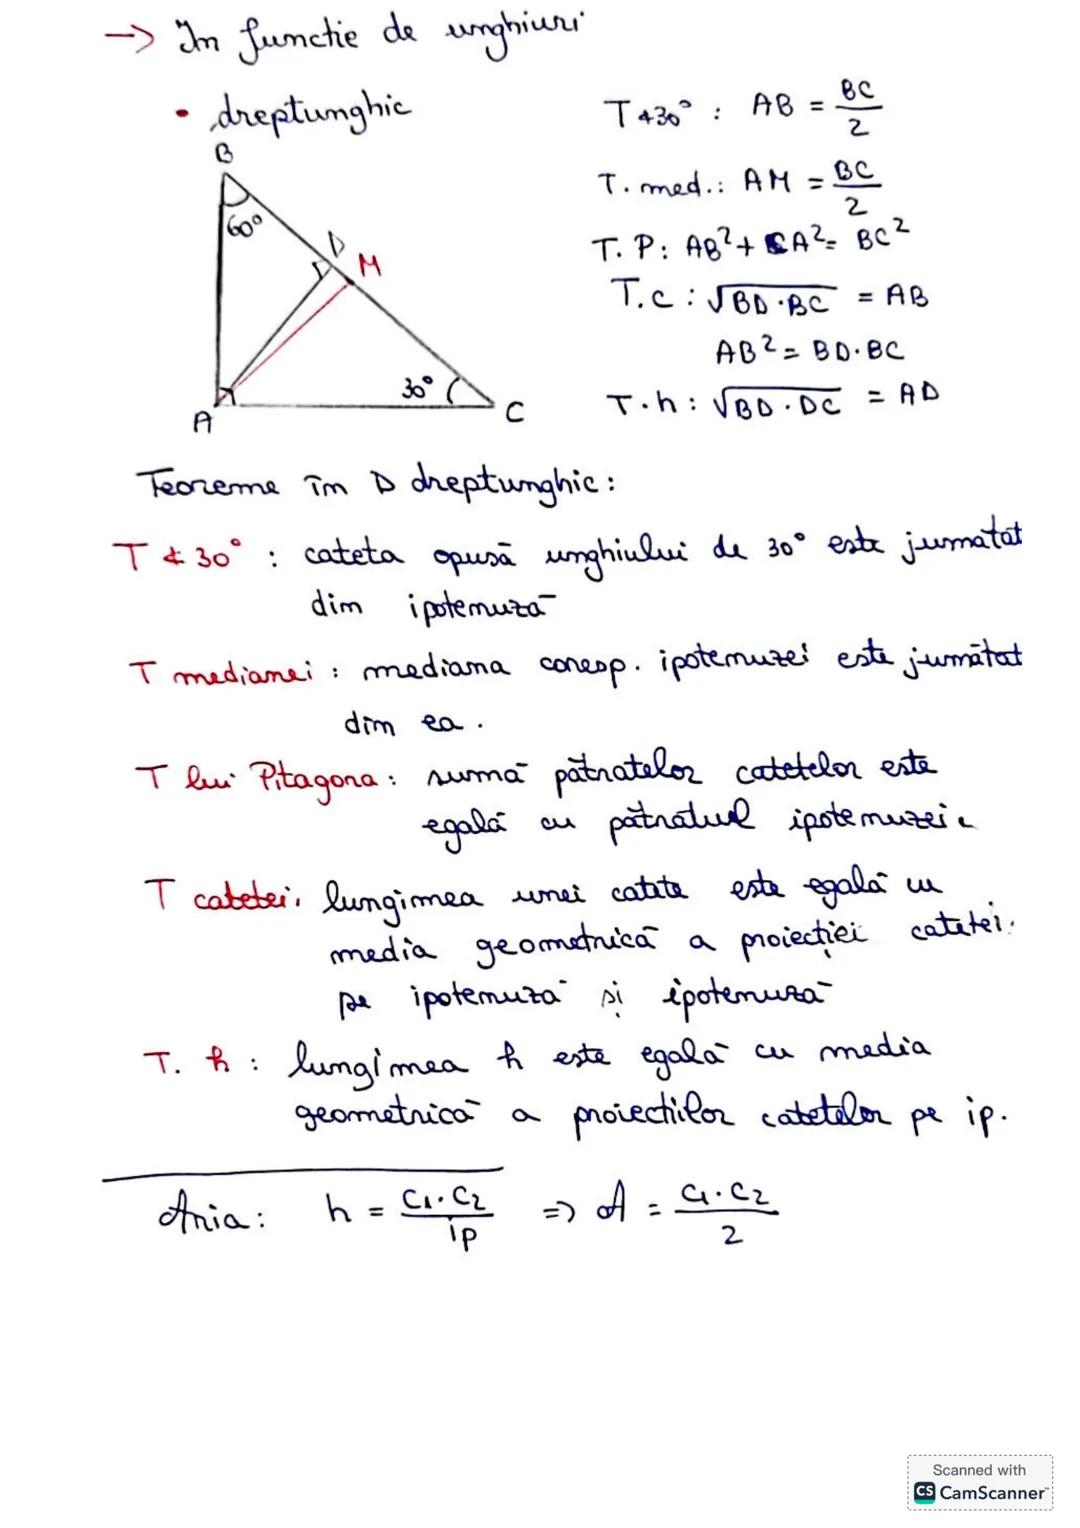 -> În functie de unghiuri
• dreptunghic
T ∢30° : AB = BC/2
T. med.: AM = BC/2
T. P: AB² + CA² = BC²
T.c : √BD·BC = AB
AB² = BD·BC
T.h : √BD·DC = AD
B
60°
D
M
30°
A
C
Teoreme în Δ dreptunghic:
T ∢ 30° : cateta opusă unghiului de 30° este jumătat
din ipotenuză
T medianei : mediana coresp. ipotenuzei este jumătat
din ea .
T lui Pitagora : sumă pătratelor catetelor este
egală cu pătratul ipotenuzei.
T catetei: lungimea unei catete este egală cu
media geometrică a proiecției catetei.
pe ipotenuză și ipotenuză
T. h : lungimea h este egală cu media
geometrică a proiectiilor catetelor pe ip.
Aria: h = C₁·C₂/ip => A = C₁·C₂/2
Scanned with
CS CamScanner™